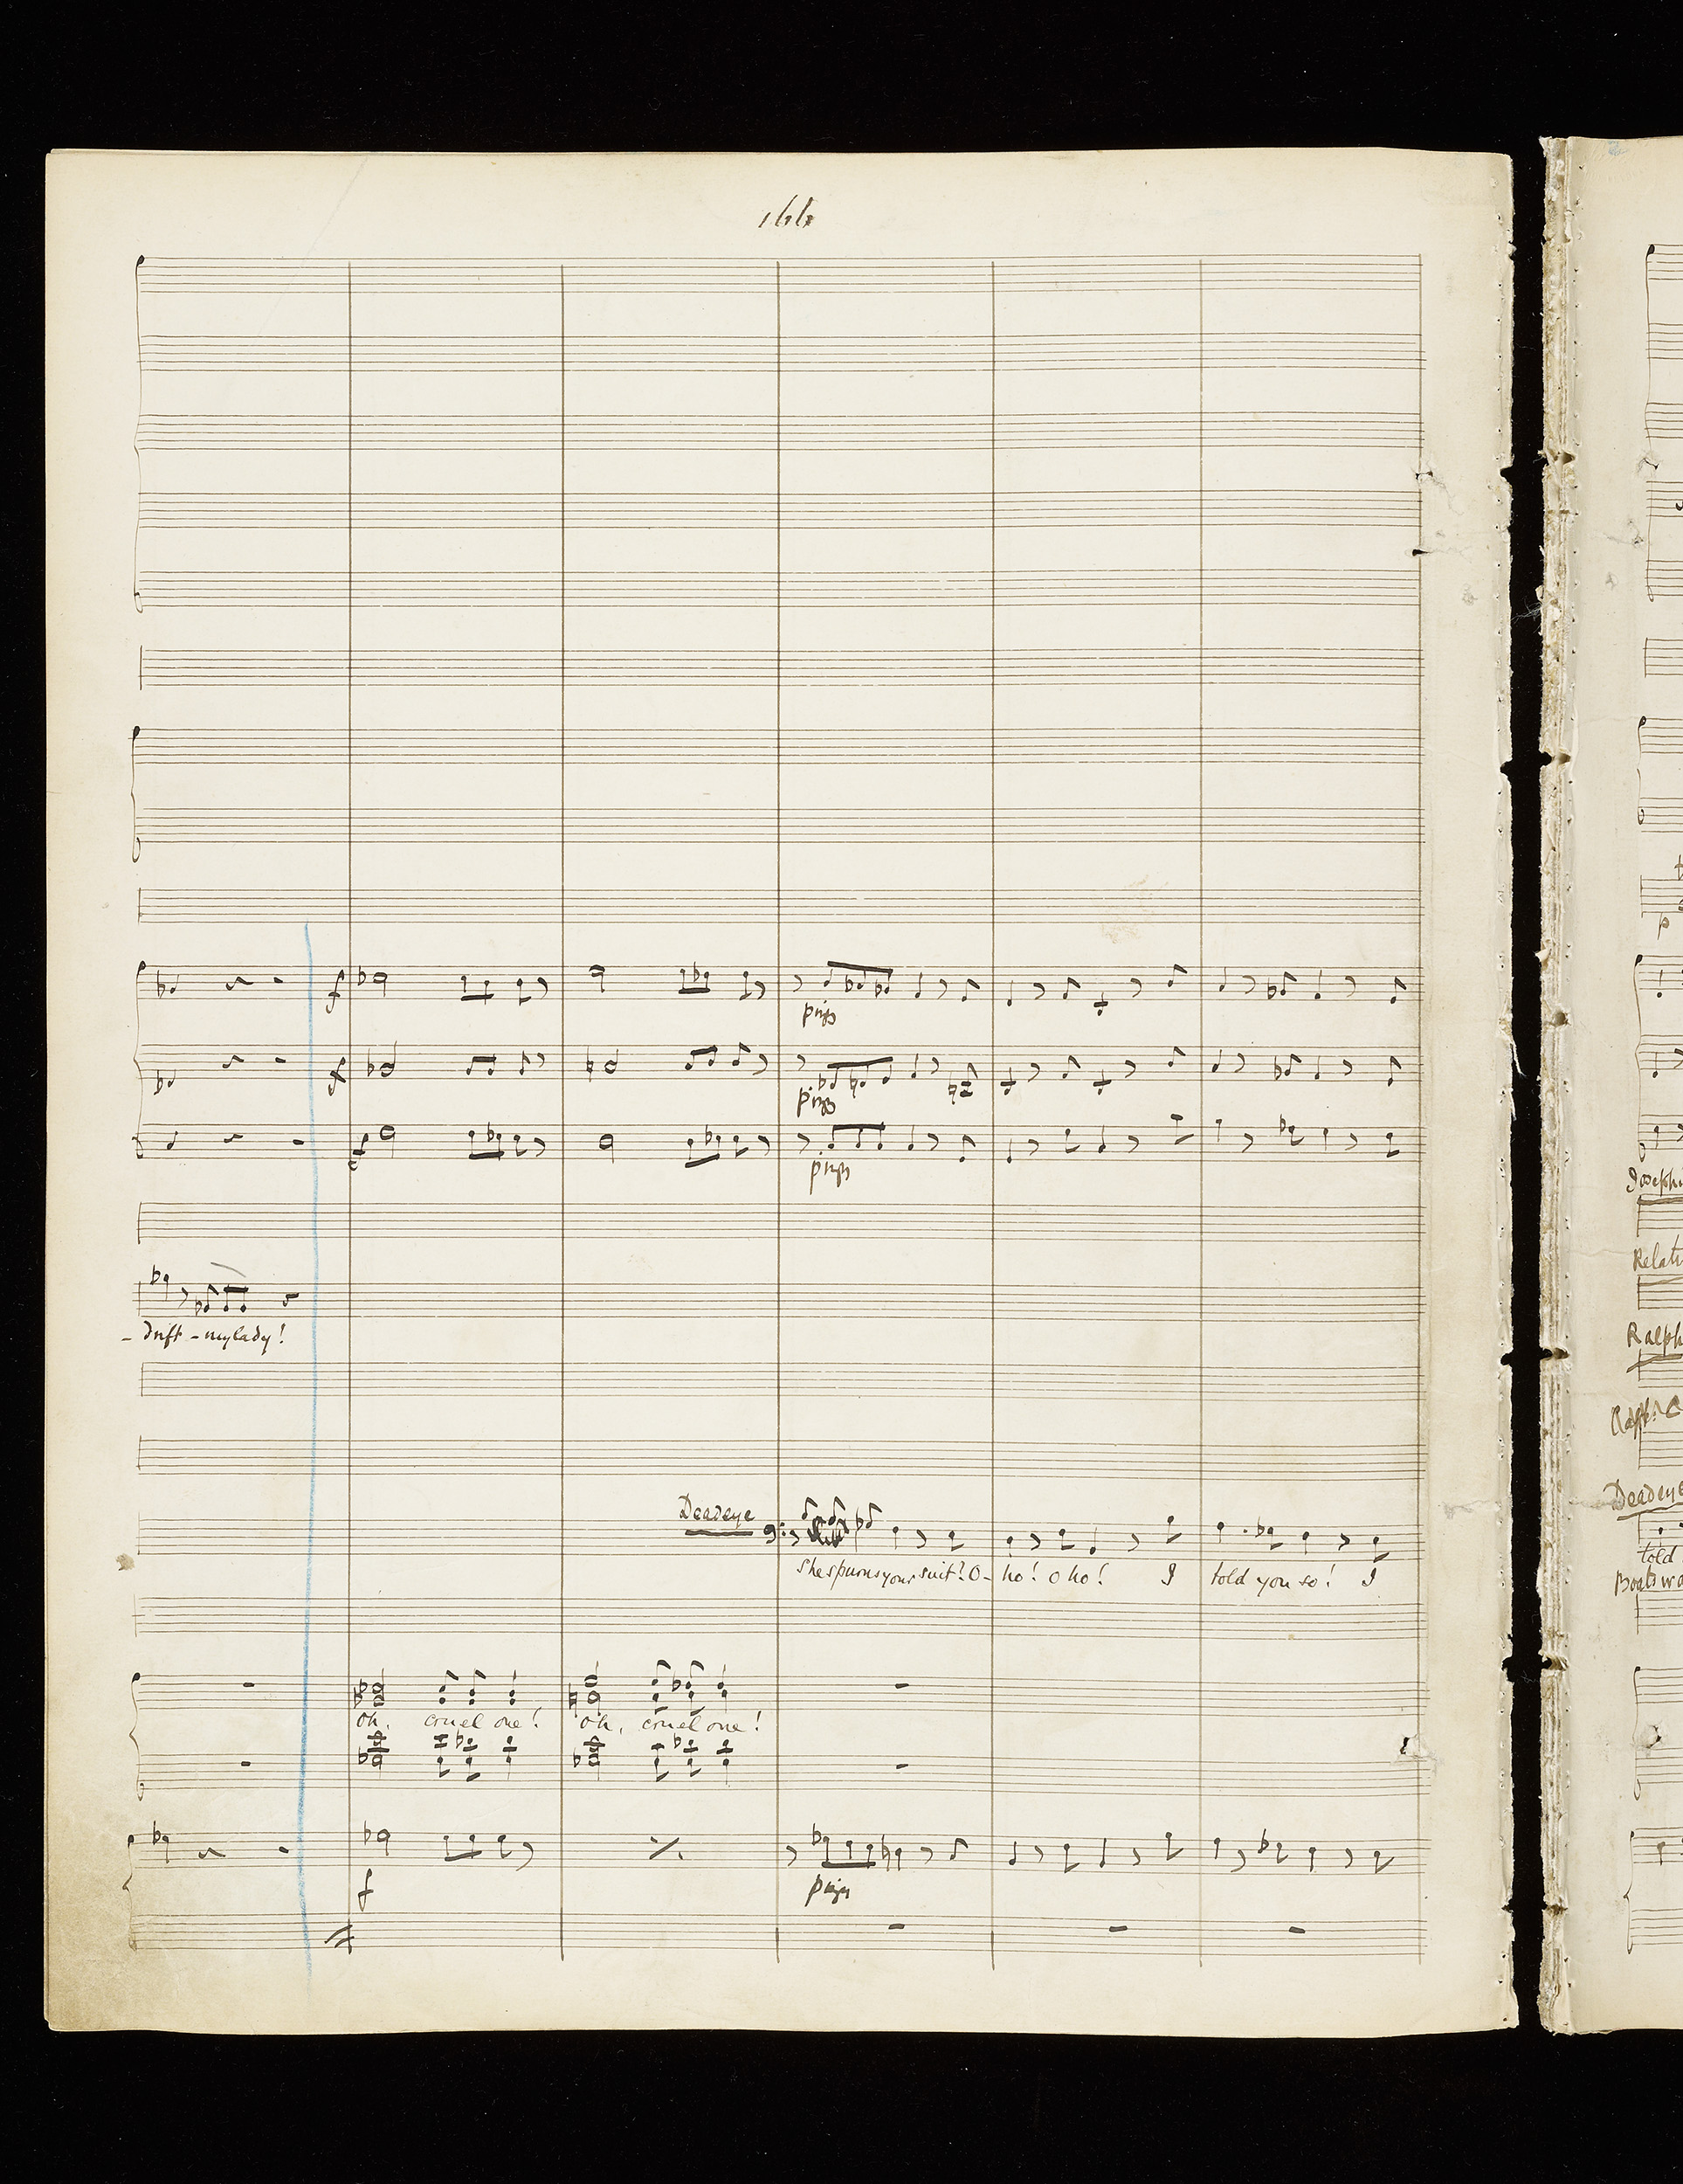 166
f
pizz
f
pizz
f
pizz
- drift - my lady!
Deadeye
She spurns your suit? O- ho! o ho! I told you so! I
oh, cruel one! oh, cruel one!
f
pizz
p
Josephi
Relati
Ralph
Capt: C
Deadeye
told
Boatswa